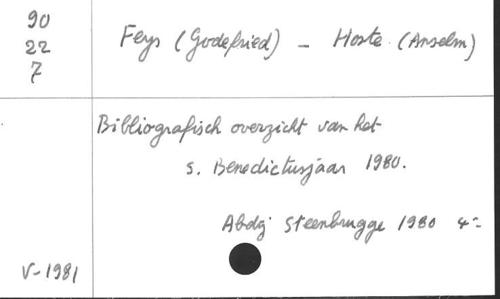 90
22
7
Feys (Godefried) - Hoste (Anselm)
Bibliografisch overzicht van het
s. Benedictusjaar 1980.
Abdij Steenbrugge 1980 4°
V-1981